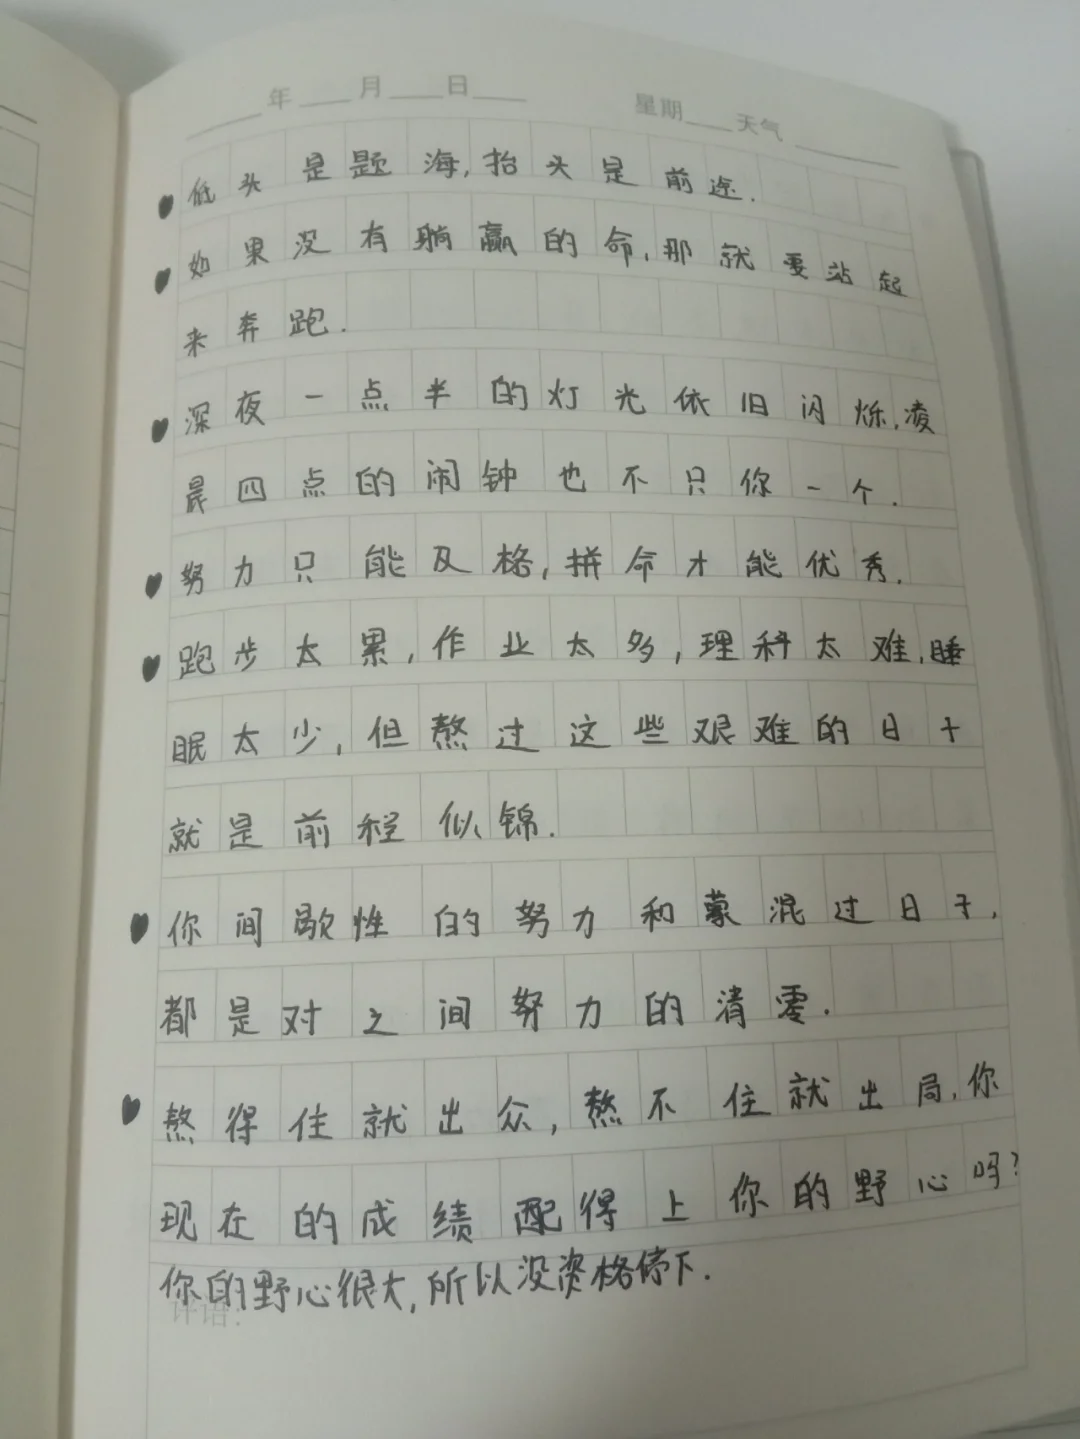 ____年____月____日____ 星期____天气________
♥低头是题海,抬头是前途.
♥如果没有躺赢的命,那就要站起
来奔跑.
♥深夜一点半的灯光依旧闪烁,凌
晨四点的闹钟也不只你一个.
♥努力只能及格,拼命才能优秀.
♥跑步太累,作业太多,理科太难,睡
眠太少,但熬过这些艰难的日子
就是前程似锦.
♥你间歇性的努力和蒙混过日子,
都是对之间努力的清零.
♥熬得住就出众,熬不住就出局,你
现在的成绩配得上你的野心吗?
你的野心很大,所以没资格停下.
评语: